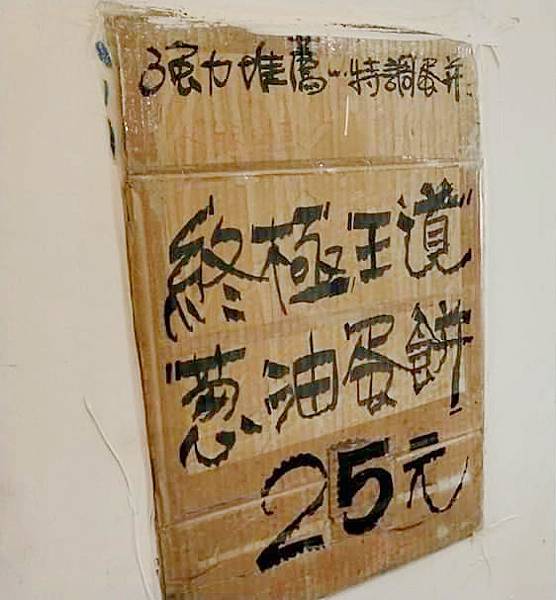 強力推薦…特調蛋并
終極王道
蔥油蛋餅
25元